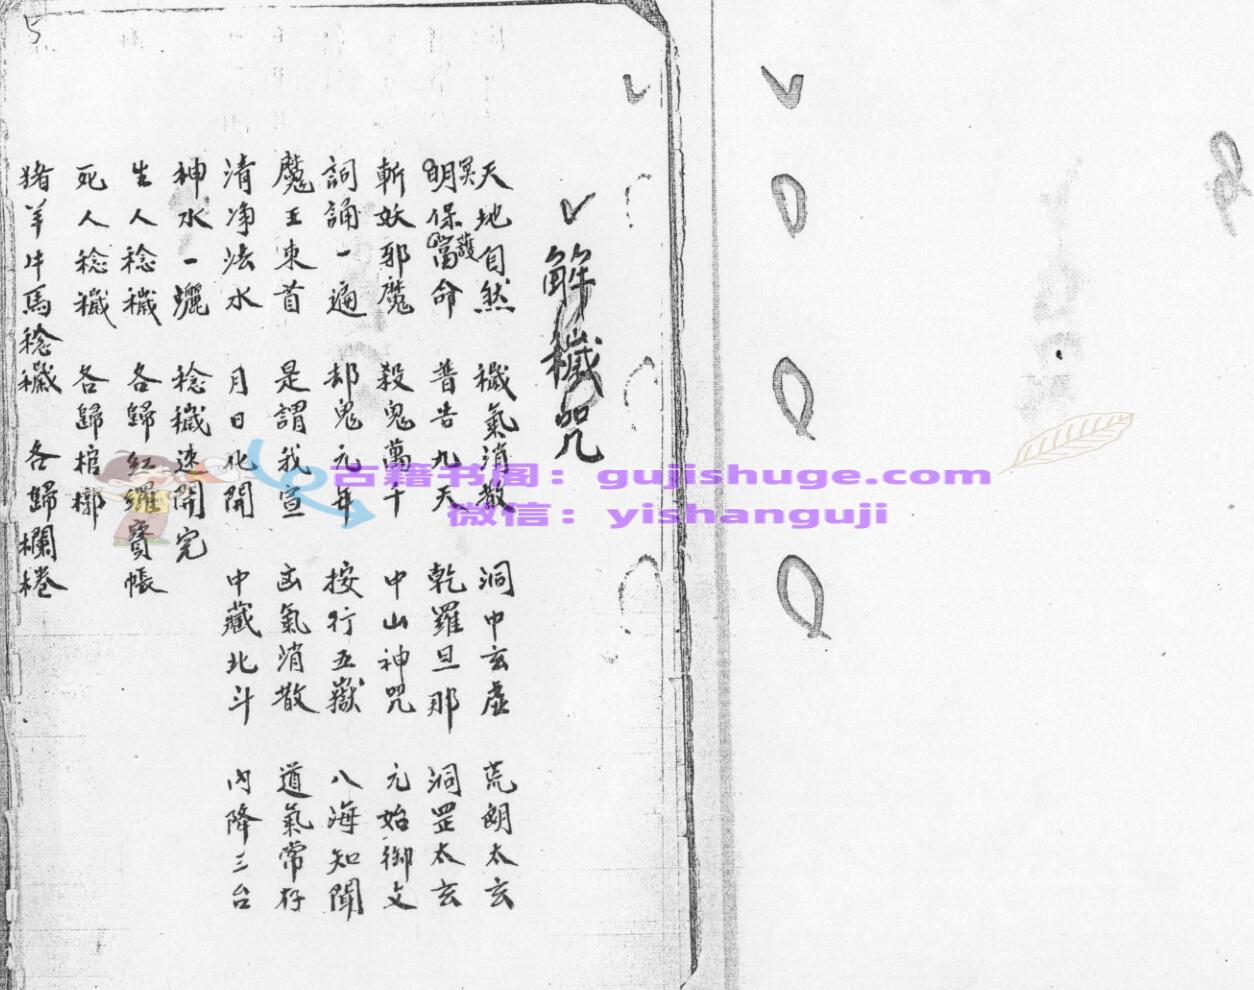 5
解穢咒
天地自然 穢氣消散 洞中玄虛 荒朗太玄
明保當命 普告九天 乾羅旦那 洞罡太玄
護
斬妖邪魔 殺鬼萬千 中山神咒 元始御文
詞誦一遍 却鬼元年 按行五嶽 八海知聞
魔王束首 是謂我宣 凶氣消散 道氣常存
清净法水 月日化開 中藏北斗 內降三台
神水一灑 稔穢速開完
生人稔穢 各歸紅羅寶帳
死人稔穢 各歸棺槨
猪羊牛馬稔穢 各歸欄棬
古籍书阁：gujishuge.com
微信：yishanguji